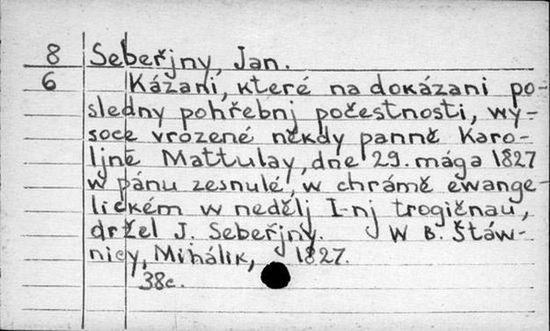 8 Sebeřjny, Jan.
6 Kázani, které na dokázani po-
sledny pohřebnj počestnosti, wy-
soce vrozené někdy panně Karo-
ljně Mattulay, dne 29. mága 1827
w pánu zesnulé, w chrámě ewange-
lickém w nedělj I-nj trogičnau,
držel J. Sebeřjny. W B. Štáw-
nicy, Mihálik, 1827.
38c.